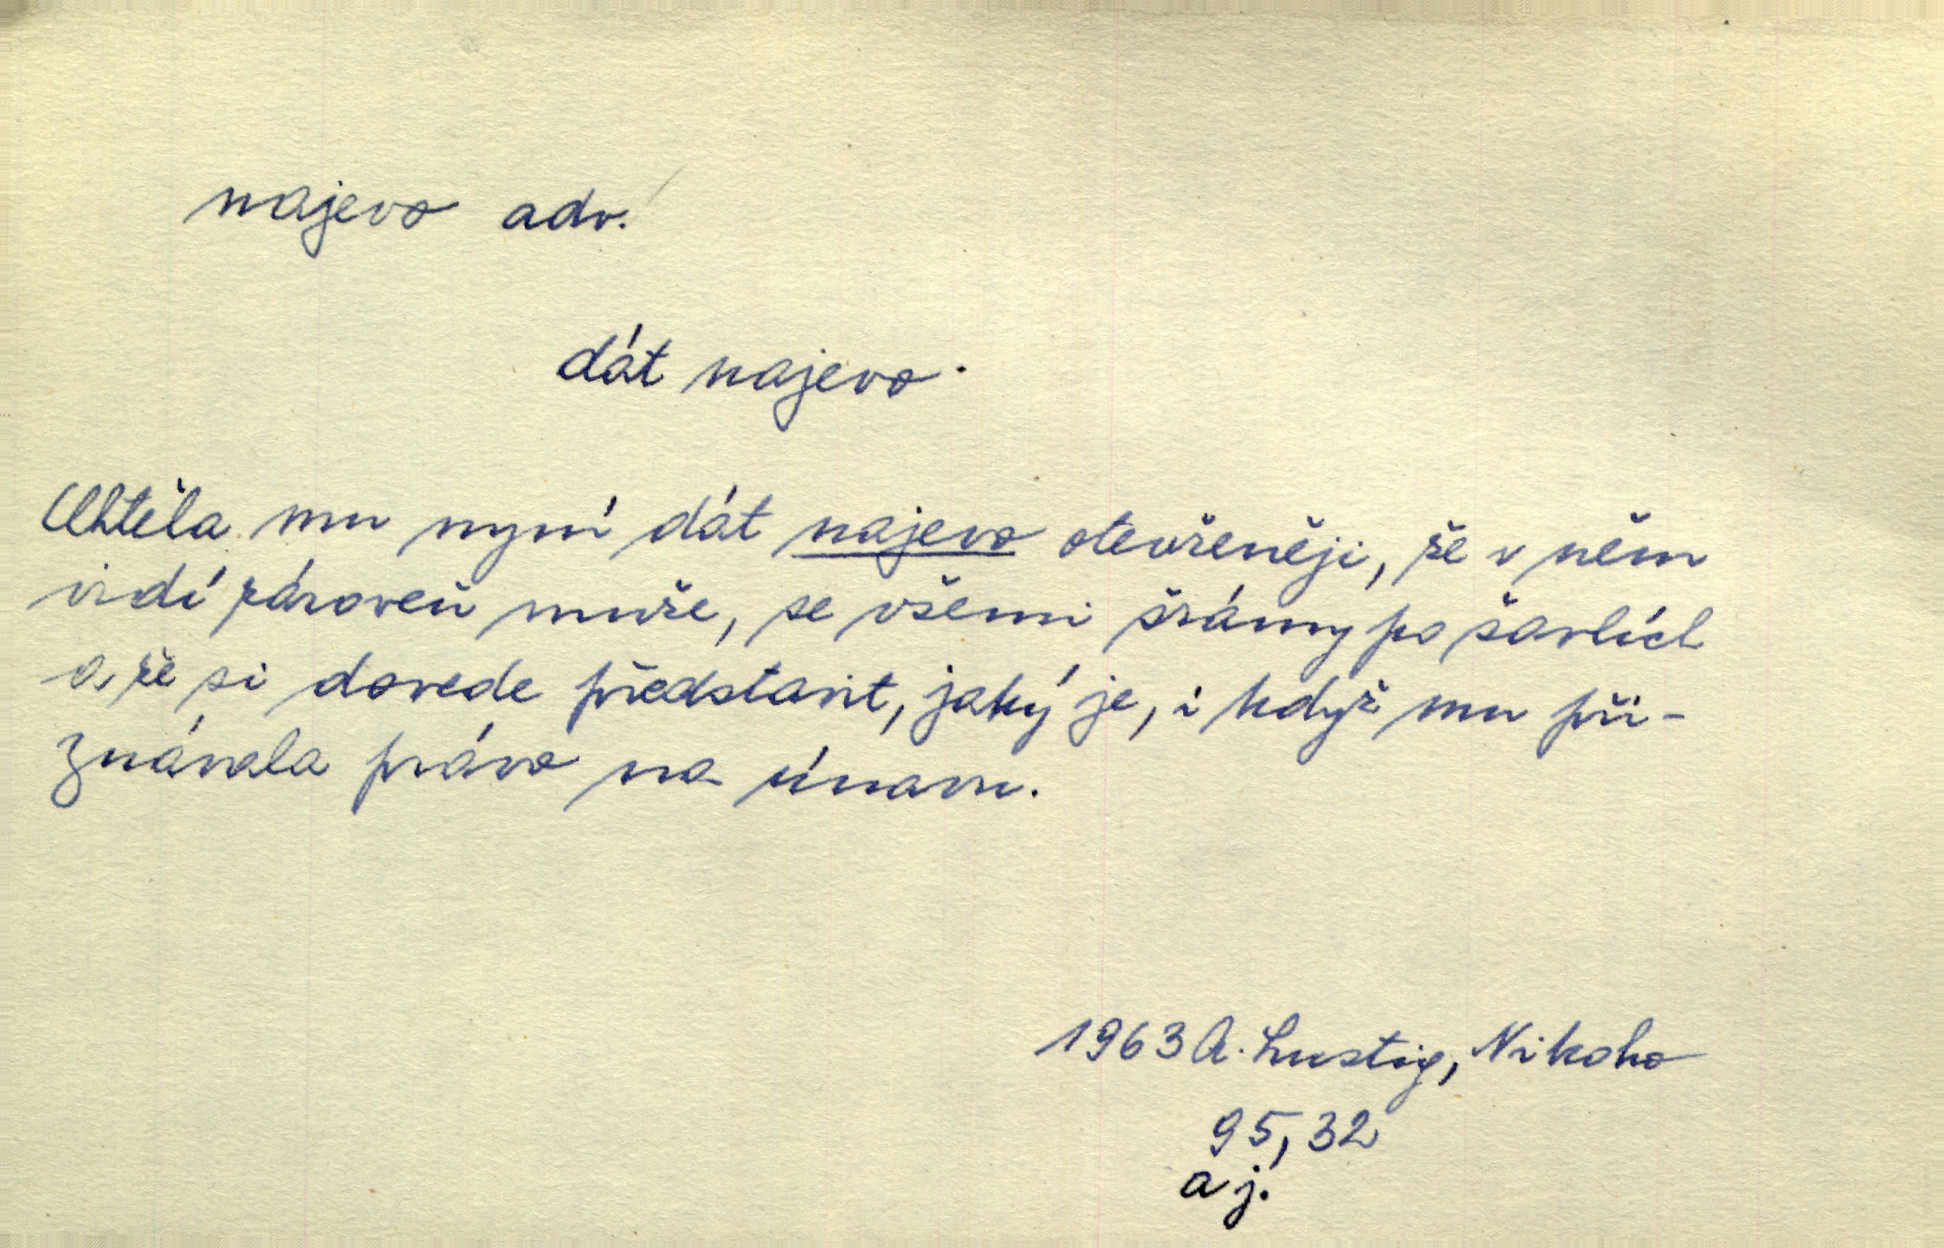 najevo adv.
dát najevo.
Chtěla mu nyní dát najevo otevřeněji, že v něm
vidí zároveň muže, se všemi šrámy po šavlích
a že si dovede představit, jaký je, i když mu při-
znávala právo na únavu.
1963 A. Lustig, Nikoho
95,32
a j.